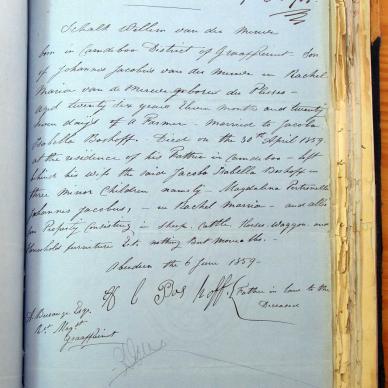 Schalk Willem van der Merwe
born in Camdeboo District of Graaffreinet Son
of Johannes Jacobus van der Merwe en Rachel
Maria van der Merwe geboren du Plessis -
aged twenty six years Eleven months and twenty
seven days of a Farmer - married to Jacoba
Isabella Boshoff. Died on the 30th April 1859
at the residence of his Father in Camdeboo - left
behind his wife the said Jacoba Isabella Boshoff -
three Minor Children namely - Magdalena
Johannes Jacobus, - en Rachel Marria - and
Property Consisting in Sheep, Cattle, Horses Waggon and
Household furniture Etc nothing But moveable. -
Aberdeen the 6 June 1859 -
Boshoff
Father in law to the
Deceased
Burange Esqe
Rt. Magst
Graaffreinet